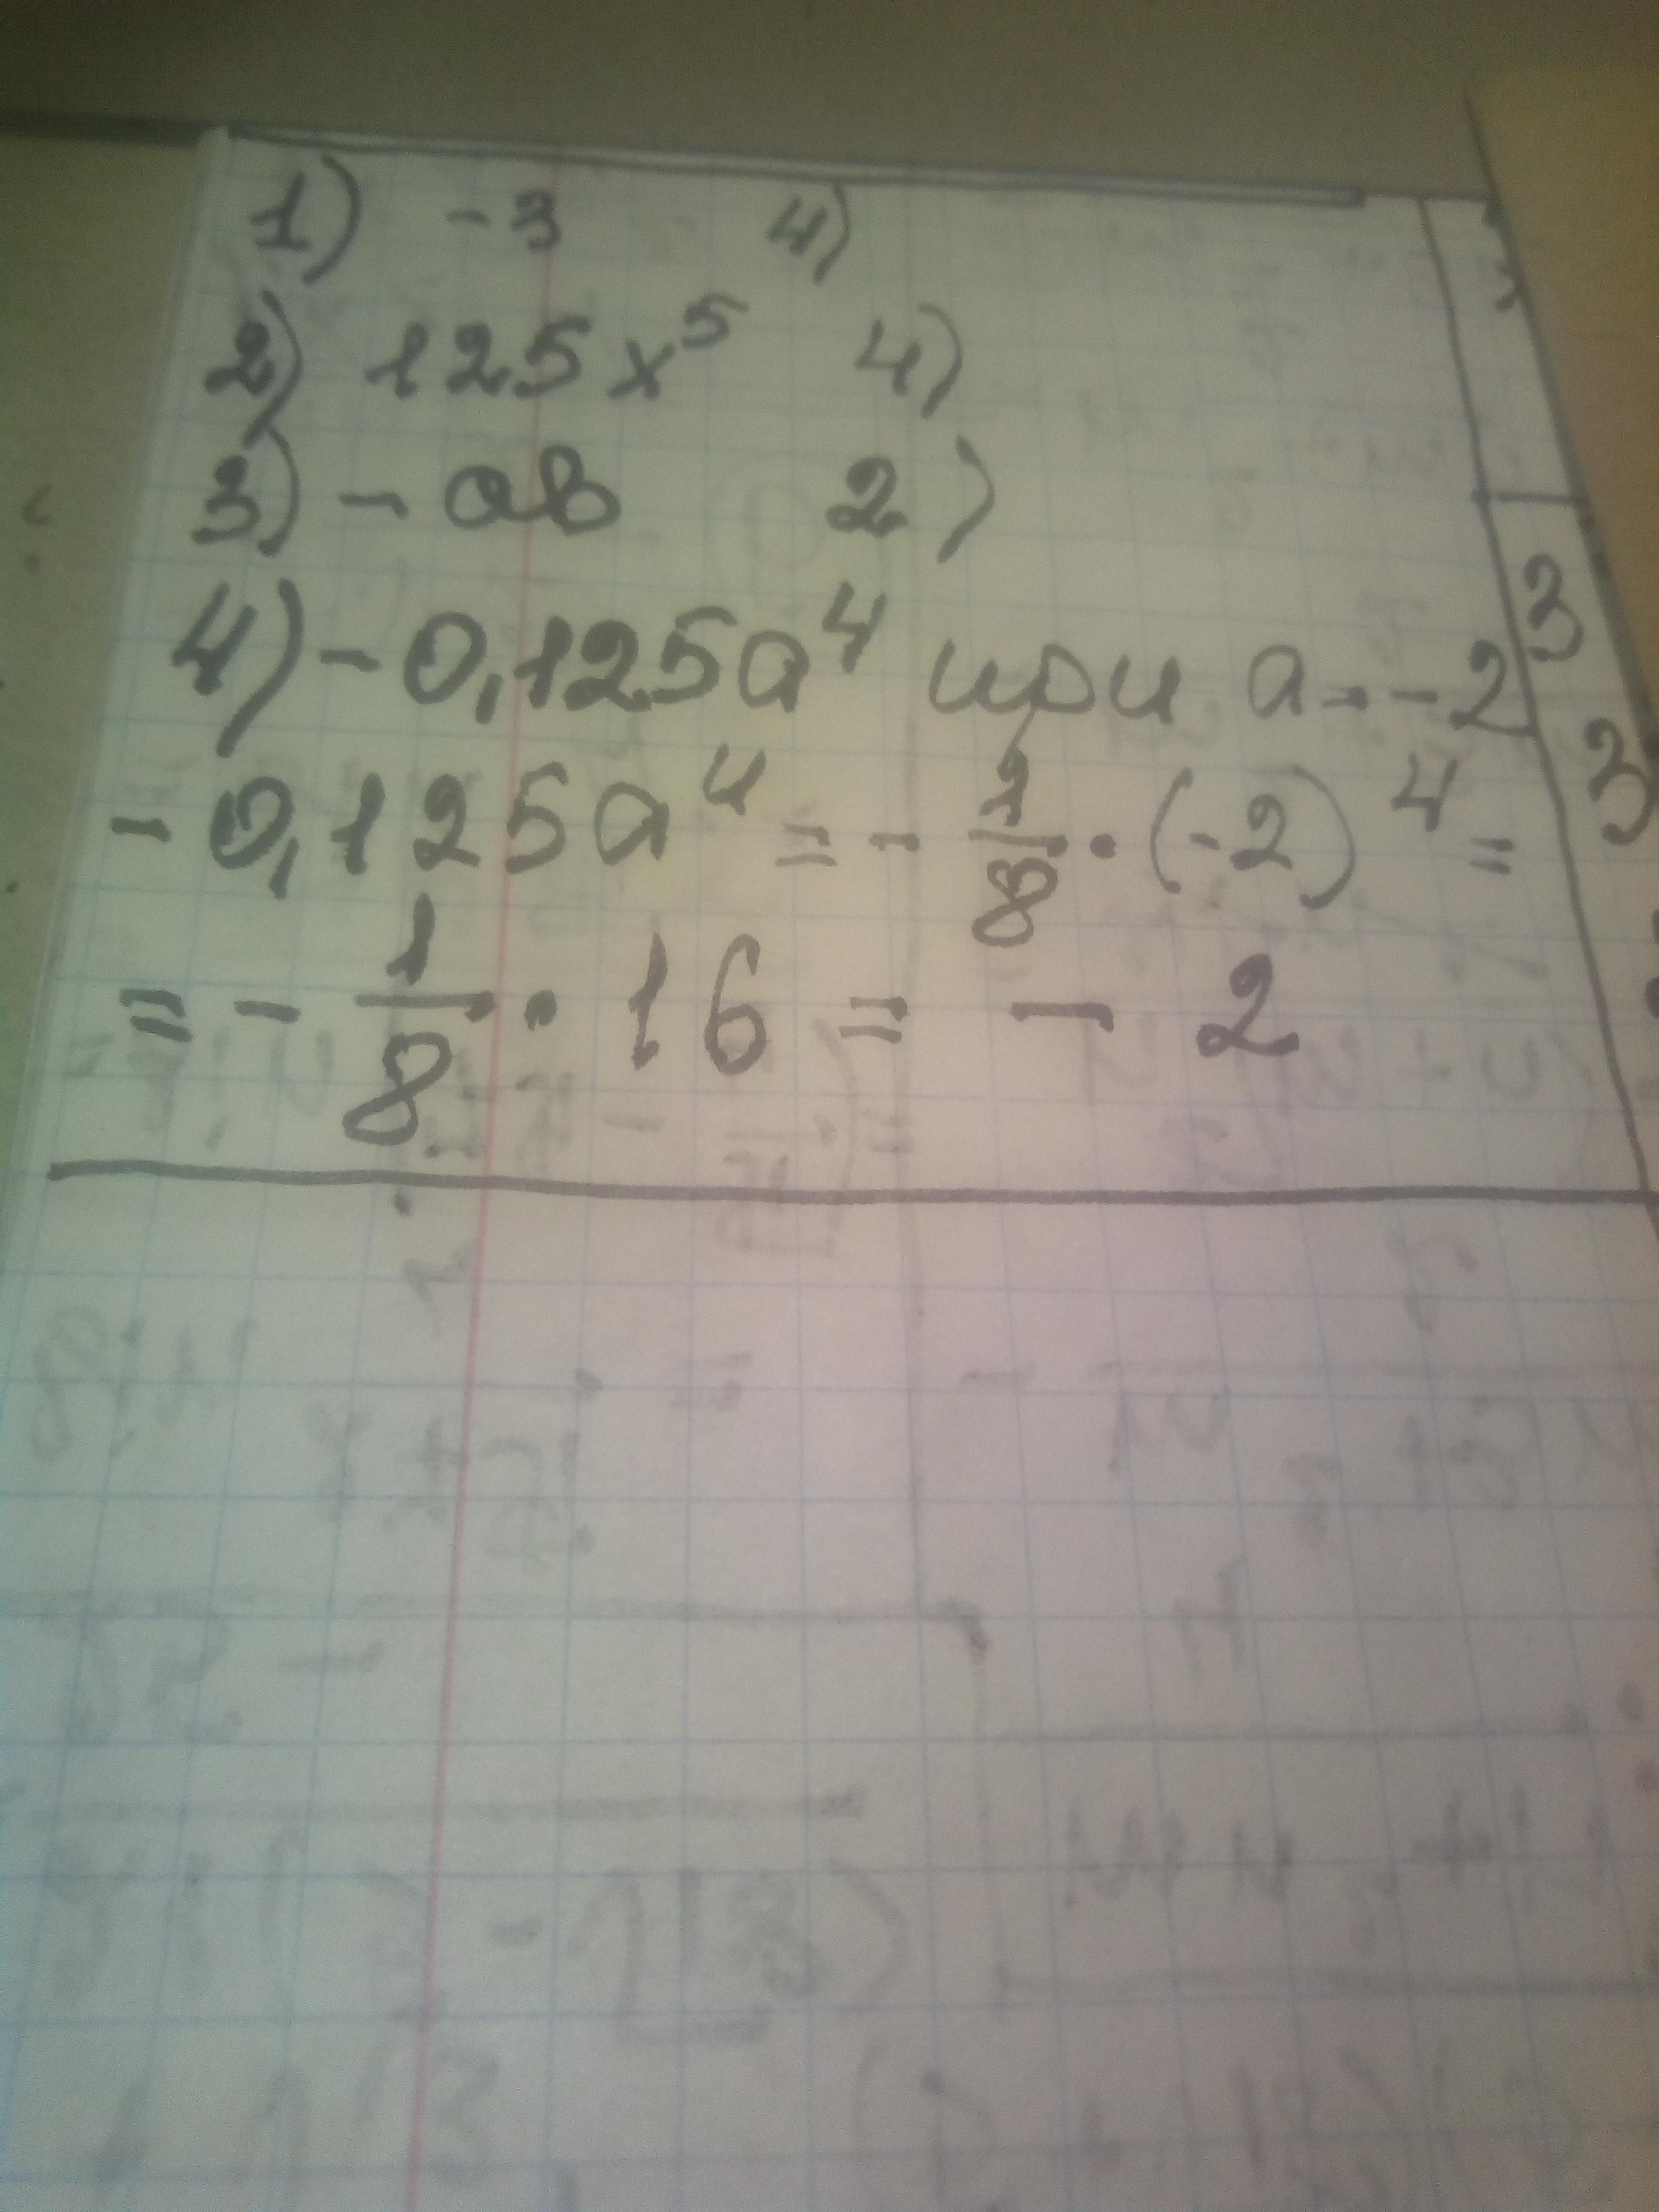 1) -3 4)
2) 125x⁵ 4)
3) -ab 2)
4) -0,125a⁴ при a = -2
-0,125a⁴ = -1/8 · (-2)⁴ =
= -1/8 · 16 = -2
3
3